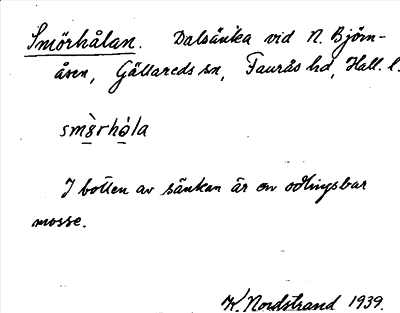 Smörhålan. Dalsänka vid N. Björn-
åsen, Gällareds sn, Faurås hd, Hall. l.
sm&#x300;ȣrhȯla
I botten av sänkan är en odlingsbar
mosse.
K. Nordstrand 1939.